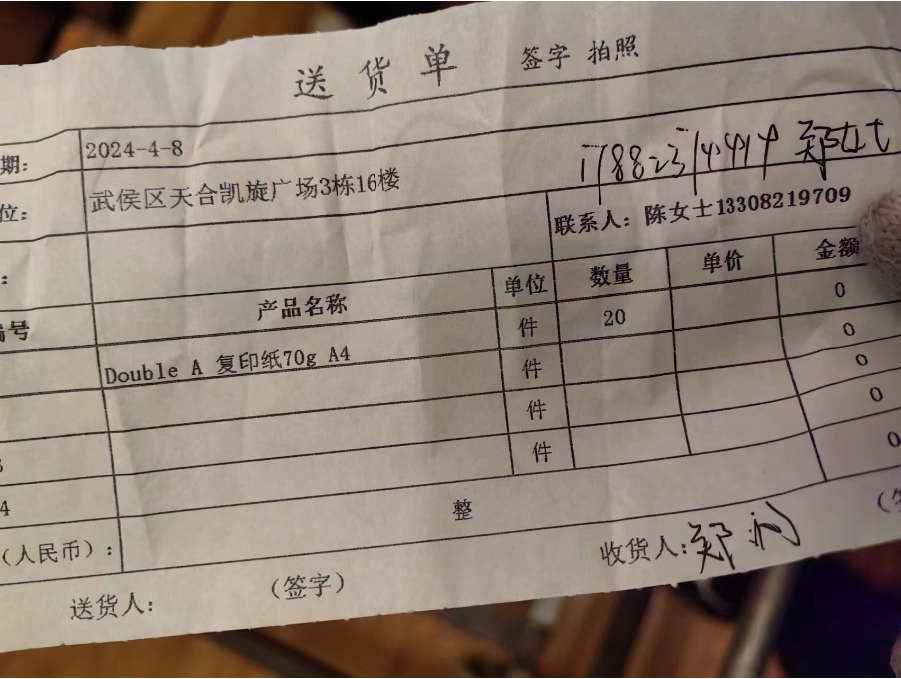 送货单 签字 拍照
期: 2024-4-8
位: 武侯区天合凯旋广场3栋16楼
郑女士
: 联系人: 陈女士13308219709
编号 产品名称 单位 数量 单价 金额
Double A 复印纸70g A4 件 20 0
件 0
3 件 0
4 件 0
(人民币): 整 0
送货人: (签字) 收货人:郑